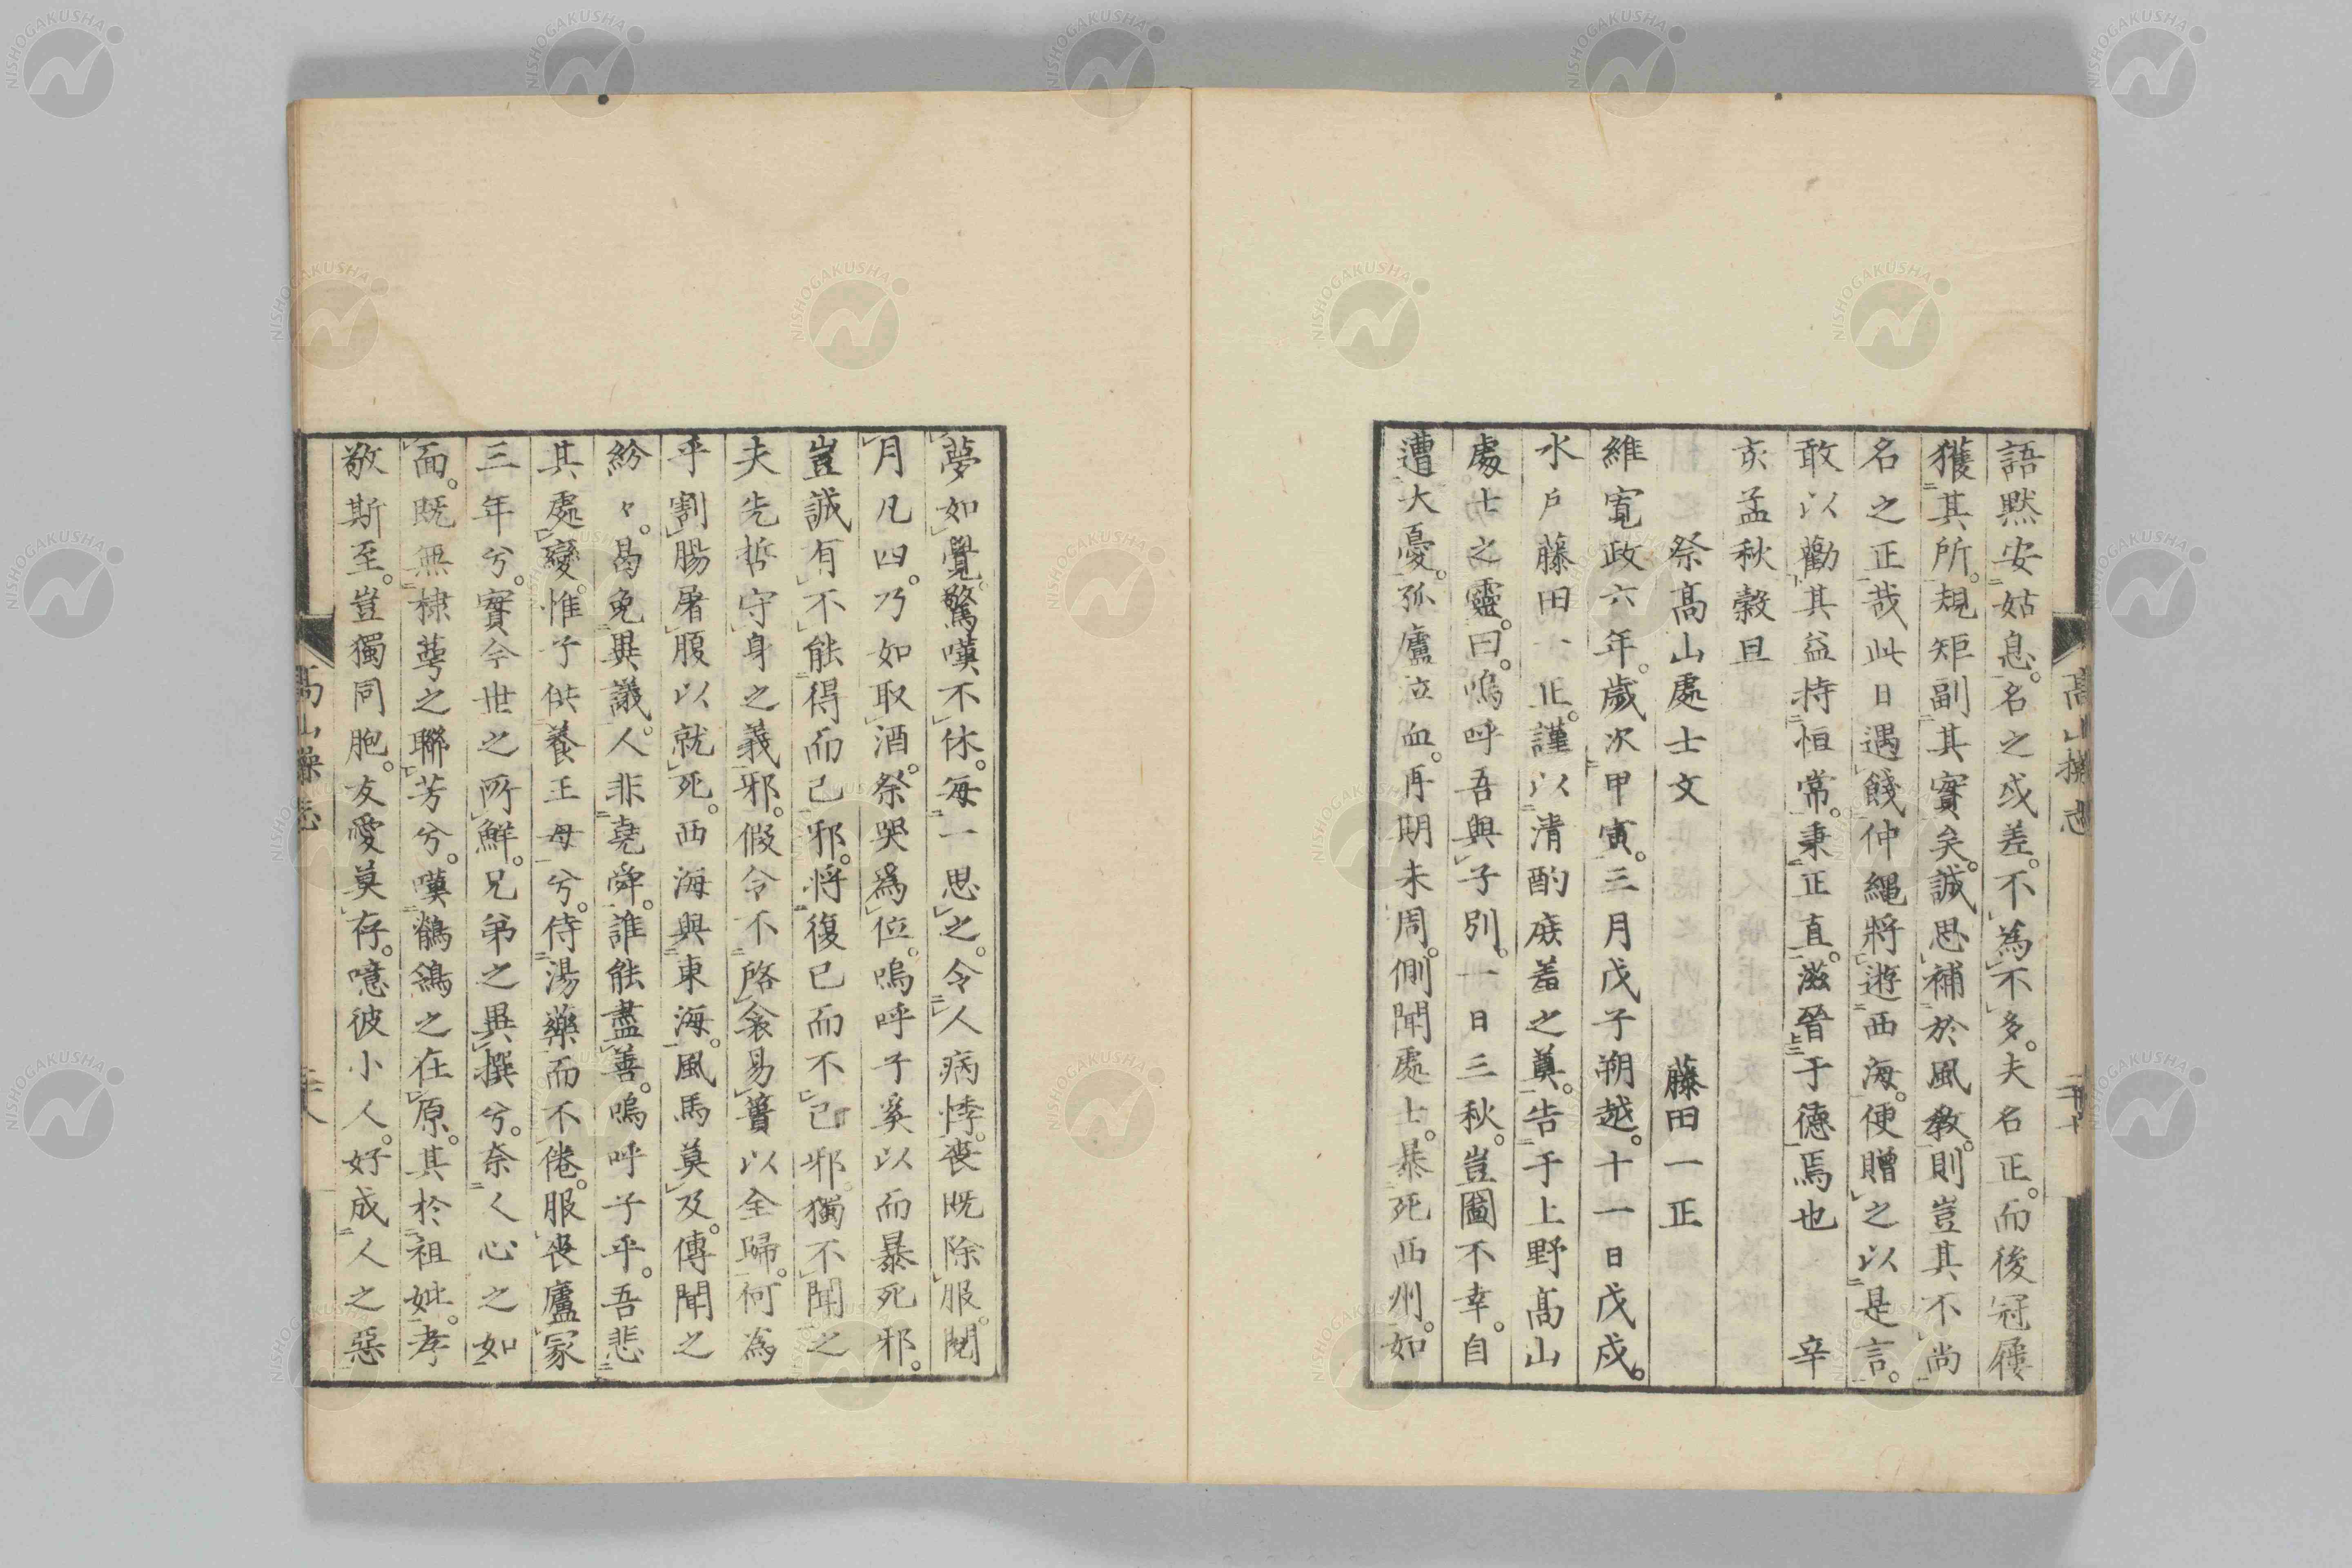 語黙安姑息。名之或差。不為不多。夫名正。而後冠履
獲其所。規矩副其實矣。誠思補於風教。則豈其不尚
名之正哉此日遇餞仲繩將遊西海。便贈之以是言。
敢以勸其益持恒常。秉正直。滋晉于德焉也 辛
亥孟秋穀旦
祭髙山處士文 藤田一正
維寛政六年。歲次甲寅。三月戊子朔越。十一日戊戌。
水戸藤田一正。謹以清酌庶羞之奠。告于上野髙山
處士之靈。曰。嗚呼吾與子別。一日三秋。豈圖不幸。自
遭大憂。孤廬泣血。再期未周。側聞處士。暴死西州。如
夢如覺。驚嘆不休。每一思之。令人病悸。喪既除服。閲
月凡四。乃如取酒。祭哭爲位。嗚呼子奚以而暴死邪。
豈誠有不能得而已邪。將復已而不已邪。獨不聞之
夫先哲守身之義邪。假令不啓衾易簀以全歸。何為
乎割腸屠腹以就死。西海與東海。風馬莫及。傳聞之
紛々。曷免異議。人非堯舜。誰能盡善。嗚呼子乎。吾悲
其處變。惟子供養王母兮。侍湯藥而不倦。服喪廬冢
三年兮。實今世之所鮮。兄弟之異撰兮。奈人心之如
面。既無棣萼之聯芳兮。嘆鶺鴒之在原。其於祖妣。孝
敬斯至。豈獨同胞。友愛莫存。噫彼小人。好成人之惡
髙山操志
髙山操志
NISHOGAKUSHA